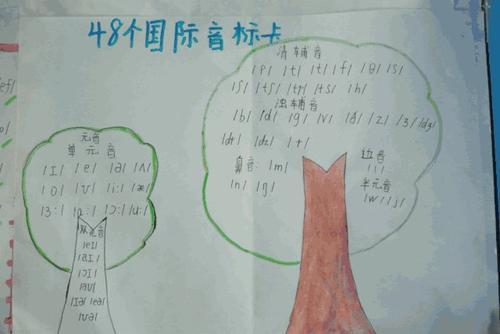 48个国际音标卡
元音
单元音
/ɪ/ /e/ /ə/ /ʌ/
/ɒ/ /ʊ/ /i:/ /æ/
/ɜ:/ /ɑ:/ /ɔ:/ /u:/
双元音
/eɪ/
/aɪ/
/ɔɪ/
/aʊ/
/ɪə/ /eə/
/ʊə/
清辅音
/p/ /t/ /t/ /f/ /θ/ /s/
/ʃ/ /tʃ/ /tr/ /ts/ /h/
浊辅音
/b/ /d/ /g/ /v/ /ð/ /z/ /ʒ/ /dʒ/
/dr/ /dz/ /r/
鼻音: /m/
/n/ /g/
边音
/l/
半元音
/w/ /j/